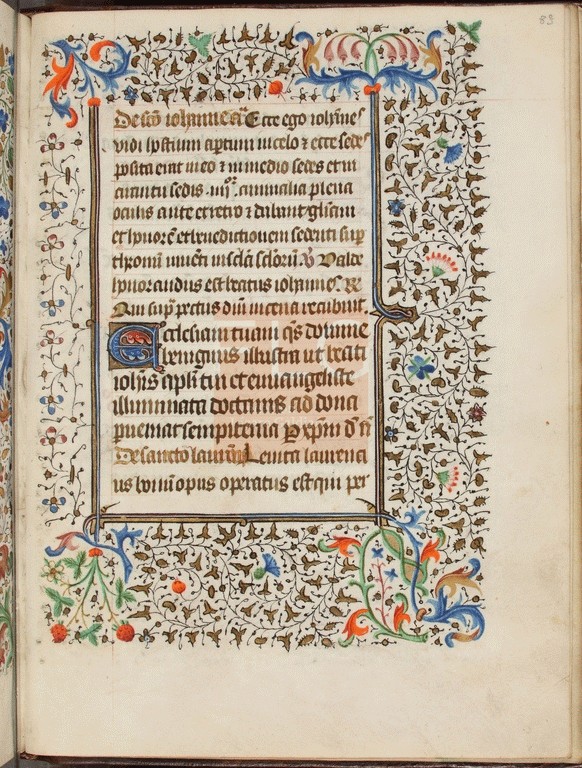 83
De sco iohanne añ Ecce ego iohãnes
vidi hostium apertum in celo ⁊ ecce sedes
posita erat in eo ⁊ in medio sedis et in
circuitu sedis .iiijᵒʳ. animalia plena
oculis ante et retro ⁊ dabunt głiam
et honorẽ et benedictionem sedenti sup̃
thronũ viuẽti in scła scłorũ ℣ Valde
honorandus est beatus iohannes. ℟
Qui sup̃ pectus dñi in cena recubuit
Ecclesiam tuam q̃s domine
benignus illustra ut beati
ioh̃is apłi tui et euuangeliste
illuminata doctrinis ad dona
p̃ueniat sempiterna P xp̃m d n̄
De sancto laurẽ Leuita laurenci
us bonũ opus operatus est qui per